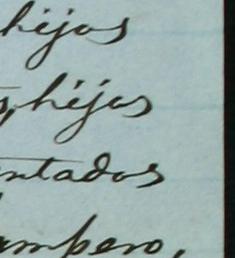 hijos
s, hijos
ntados
ampero,